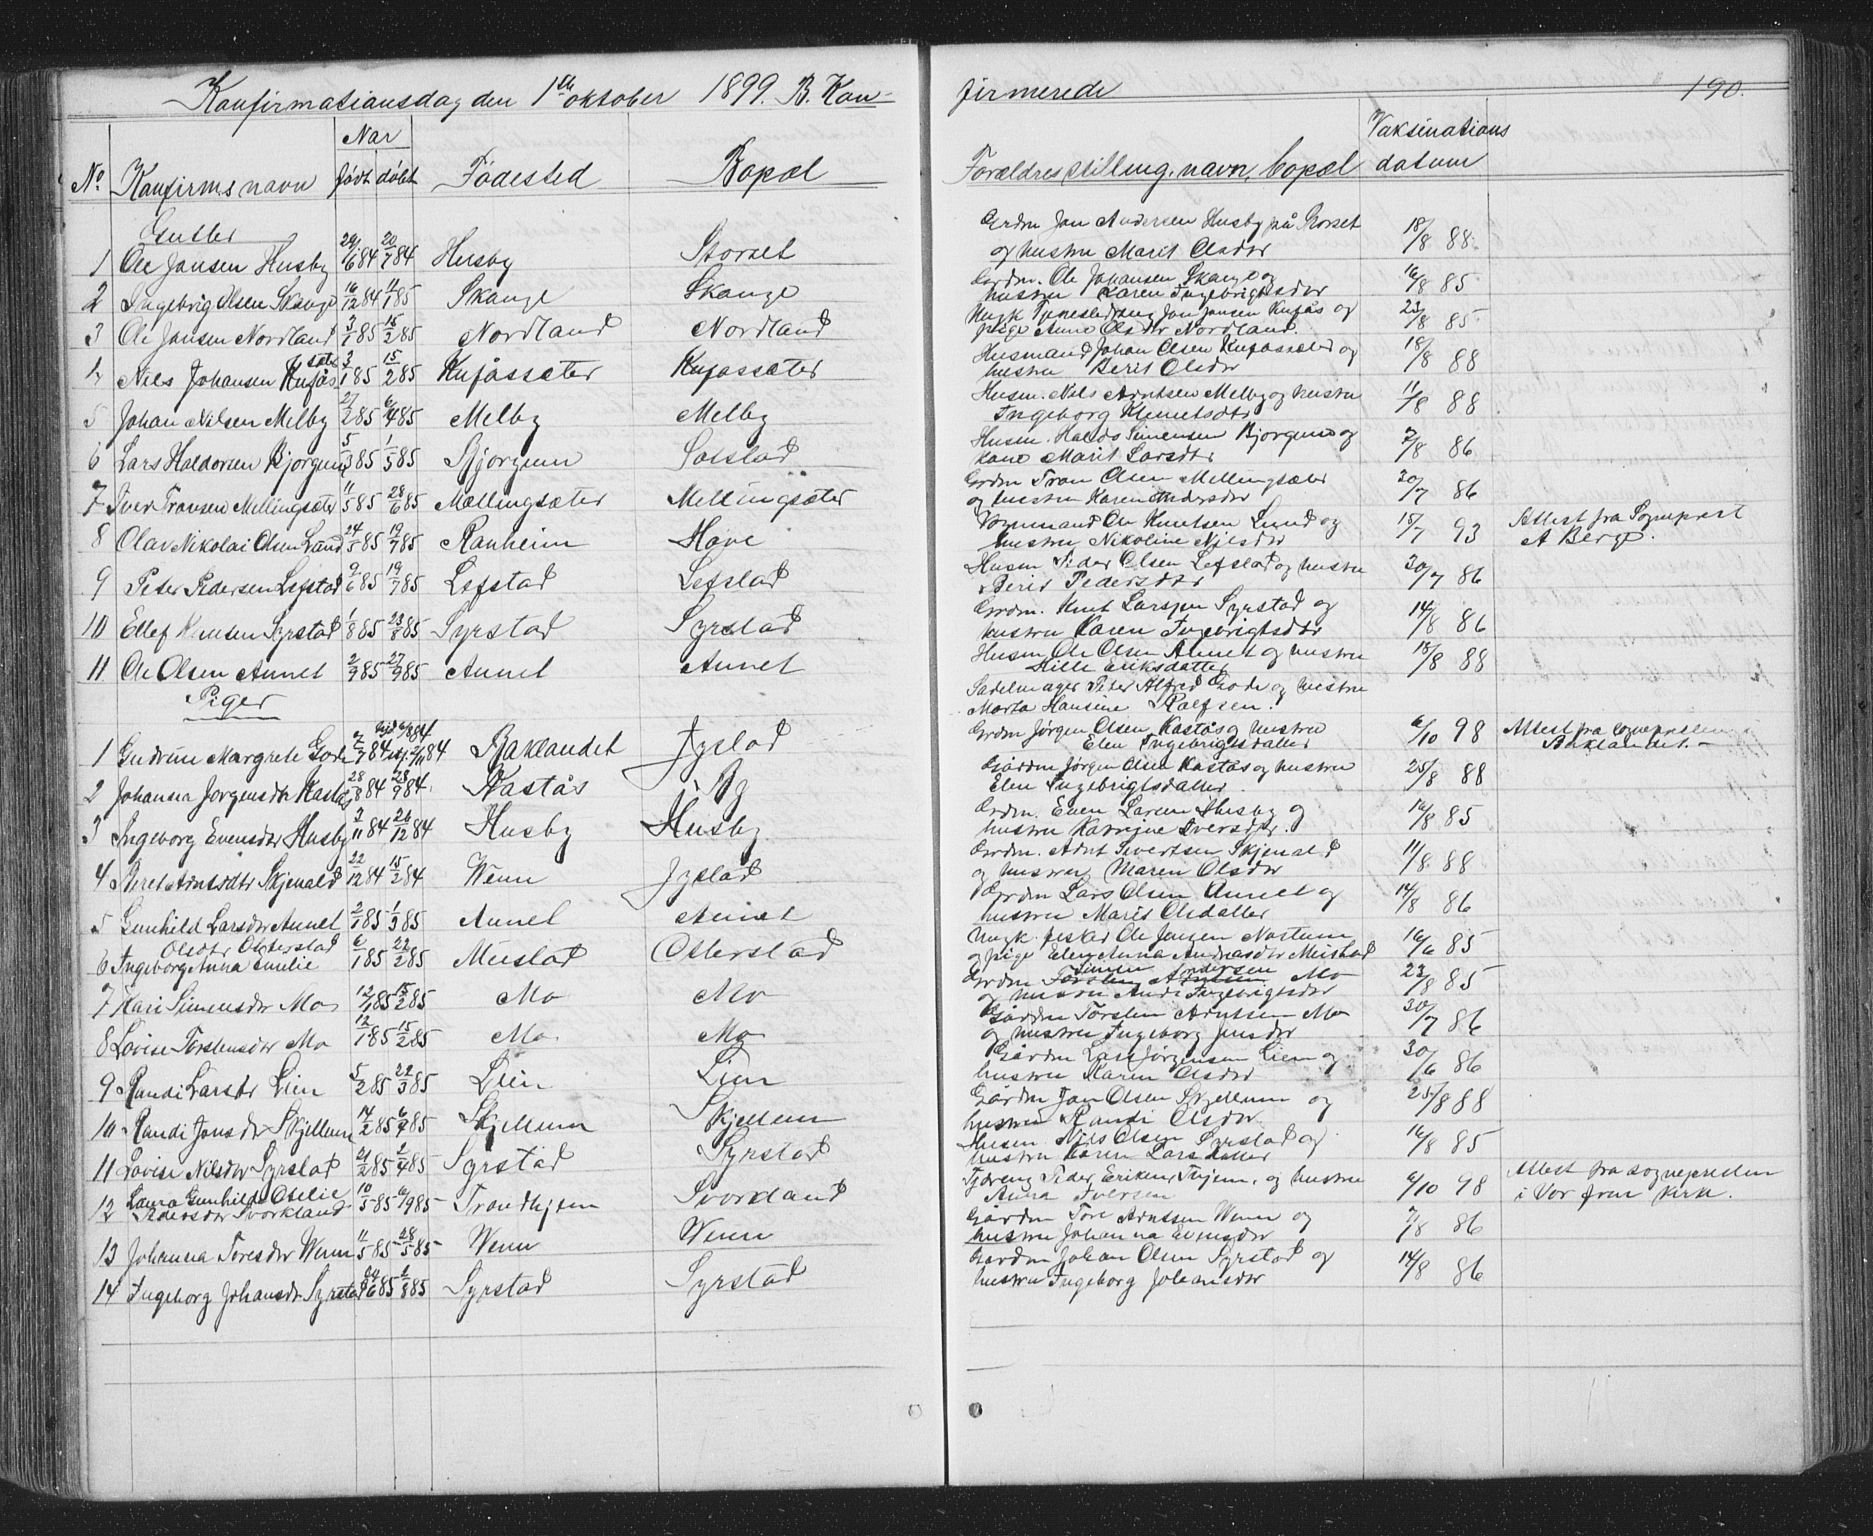 Konfirmationsdag den 1ste oktober 1899. B. Kon-
No Konfirms navn Når født døbt Fødested Bopæl
Gutter
1 Ole Jonsen Husby 29/6 84 20/7 84 Husby Storset
2 Ingebrigt Olsen Skauge 16/12 84 11/1 85 Skauge Skauge
3 Ole Jonsen Nordland 3/1 85 15/2 85 Nordland Nordland
4 Nils Johansen Kufåssæter 3/1 85 15/2 85 Kufåssæter Kufåssæter
5 Johan Nilsen Melby 27/2 85 6/4 85 Melby Melby
6 Lars Haldorsen Bjørgum 5/3 85 1/5 85 Bjørgum Solstad
7 Iver Tronsen Mellingsæter 11/5 85 28/6 85 Mellingsæter Mellingsæter
8 Olav Nikolai Olsen Lund 24/5 85 19/7 85 Ranheim Hove
9 Peter Pedersen Lefstad 9/6 85 19/7 85 Lefstad Lefstad
10 Ellef Knutsen Syrstad 1/8 85 23/8 85 Syrstad Syrstad
11 Ole Olsen Aunet 2/9 85 27/9 85 Aunet Aunet
Piger
1 Gudrun Margrete Gode 2/7 84 84 Baklandet Jystad
2 Johanna Jørgensdtr Kastås 28/8 84 28/9 84 Kastås By
3 Ingeborg Evensdtr Husby 3/11 84 26/12 84 Husby Husby
4 Beret Arntsdtr Skjenald 22/12 84 15/2 84 Wenn Jystad
5 Gunhild Larsdtr Aunet 2/1 85 1/3 85 Aunet Aunet
Olsdtr Osterstad
6 Ingeborg Anna Emilie 6/1 85 22/2 85 Mustad Osterstad
7 Kari Simensdtr Mo 12/1 85 15/2 85 Mo Mo
8 Lovise Torstensdtr Mo 12/1 85 15/2 85 Mo Mo
9 Randi Larsdtr Lien 5/2 85 22/3 85 Lien Lien
10 Randi Jonsdtr Skjellum 14/2 85 6/4 85 Skjellum Skjellum
11 Lovise Nilsdtr Syrstad 21/2 85 2/4 85 Syrstad Syrstad
12 Laura Gunhild Otelie 10/5 85 6/9 85 Trondhjem Svorkland
Pedersdtr Svorkland
13 Johanna Toresdtr Wenn 11/5 85 28/5 85 Wenn Wenn
14 Ingeborg Johansdtr Syrstad 6 85 2/8 85 Syrstad Syrstad
firmerede 190.
Forældres stilling, navn, bopæl Vaksinations datum
Grdm Jon Andersen Husby på Storset
og hustru Marit Olsdtr 18/8 88
Gardm. Ole Johansen Skauge og
hustru Karen Ingebrigtsdtr 16/8 85
Ungk Tjenestedreng Jon Jonsen Kufås og
pige Ane Olsdtr Nordland. 23/8 85
Husmand Johan Olsen Kufåssæter og
hustru Berit Olsdtr 18/8 88
Husm. Nils Arntsen Melby og hustru
Ingeborg Klemetsdtr 11/8 88
Husm. Haldo Simensen Bjørgum og
kone Marit Larsdtr 2/8 86
Grdm Tron Olsen Mellingsæter
og hustru Karen Andersdtr 20/7 86
Vognmand Ole Knutsen Lund og
hustru Nikoline Nilsdtr 15/7 93 Attest fra Sogneprest
A Berge.
Husm Peder Olsen Lefstad og hustru
Berit Pedersdtr 30/7 86
Grdm. Knut Larssen Syrstad og
hustru Karen Ingebrigtsdtr 14/8 86
Husm Ole Olsen Aunet og hustru
Hille Eriksdatter 18/8 88
Sadelmager Peter Alfred Gode og hustru
Marta Hansine Rolfsen.
Grdm Jørgen Olsen Kastås og hustru
Elen Ingebrigtsdatter 6/10 98 Attest fra sognepresten
Baklandet.
Gårdm Jørgen Olsen Kastås og hustru
Elen Ingebrigtsdatter 25/8 88
Grdm. Even Larsen Husby og
hustru Katrine Iversdtr. 16/8 85
Grdm. Arnt Sivertsen Skjenald
og hustru Maren Olsdtr 11/8 88
Grdm Lars Olsen Aunet og
hustru Marit Olsdatter 14/8 86
Ungk. fisker Ole Jonsen Nostum
og pige Elen Anna Andreasdtr Mustad 16/6 85
Simen Andersen
Grdm Mo
og hustru Ingebrigtsdtr 23/8 85
Gårdm Torsten Arntsen Mo
og hustru Ingeborg Jonsdtr 30/7 86
Gårdm Lars Jørgensen Lien og
hustru Karen Olsdtr 30/6 86
Gårdm Jon Olsen Skjellum og
hustru Randi Olsdtr 25/8 88
Husm Nils Olsen Syrstad og
hustru Karen Larsdatter 16/8 85
Peder Eriksen og hustru
Anna Iversen 6/10 98 Attest fra sognepresten
i Vor frue kirk.
Gårdm Tore Arntsen Wenn og
hustru Johanna Evensdtr 7/8 86
Gårdm Johan Olsen Syrstad og
hustru Ingeborg Johansdtr 14/8 86